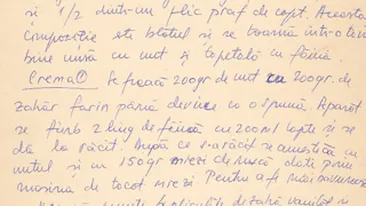 și 1/2 dintr-un plic praf de copt. Aceasta
compoziție este blatul și se toarnă într-o tavă
bine unsă cu unt și tapetată cu făină.
Crema ① Se freacă 200gr. de unt cu 200gr. de
zahăr farin până devine ca o spumă. Aparat
se fierb 2 ling de făină cu 200ml lapte și se
dă la răcit. După ce s-a răcit se amestecă cu
untul și cu 150gr miezi de nucă date prin
mașina de tocat miezi. Pentru a fi mai
plicuri de zahăr vanilat și